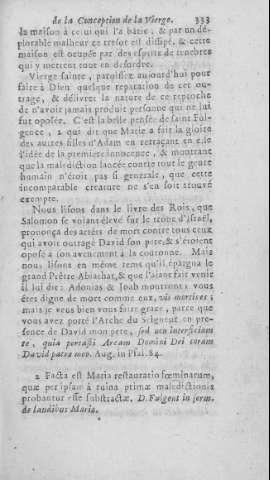 de la Conception de la Vierge. 333
la maison à celui qui l'a bâtie; & par un dé-
plorable malheur ce tresor est dissipé, & cette
maison est ocupée par des esprits de tenebres
qui y mettent tout en desordre.
Vierge sainte, paroissez aujourd'hui pour
faire à Dieu quelque reparation de cet ou-
trage, & délivrer la nature de ce reproche
de n'avoir jamais produit personne qui ne lui
fut oposée. C'est la belle pensée de saint Ful-
gence, 2 qui dit que Marie a fait la gloire
des autres filles d'Adam en retraçant en elle
l'idée de la premiere innocence, & montrant
que la malediction lancée contre tout le genre
humain n'étoit pas si generale, que cette
incomparable creature ne s'en soit trouvé
exempte.
Nous lisons dans le livre des Rois, que
Salomon se voiant élevé sur le trône d'Israël,
prononça des arrêts de mort contre tous ceux
qui avoit outragé David son pere, & s'étoient
oposé à son avenement à la couronne. Mais
nous lisons en même tems qu'il épargna le
grand Prêtre Abiathar, & que l'aiant fait venir
il lui dit: Adonias & Joab mourront: vous
êtes digne de mort comme eux, vir mortis es;
mais je veux bien vous faire grace, parce que
vous avez porté l'Arche du Seigneur en pre-
sence de David mon pere, sed non interficiam
te, quia portasti Arcam Domini Dei coram
David patre meo. Aug. in Psal. 84.
2 Facta est Maria restauratio fœminarum,
quæ per ipsam à ruina primæ maledictionis
probantur esse substractæ. D. Fulgent in serm.
de laudibus Maria.